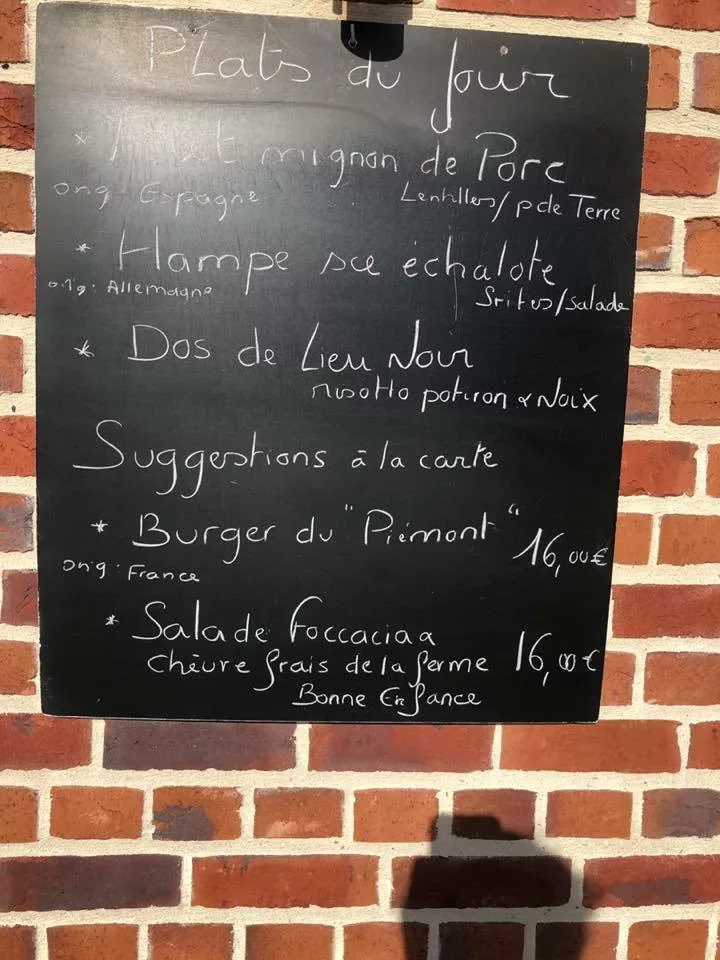 Plats du jour
* Filet mignon de Porc
orig: Espagne Lentilles/p de Terre
* Hampe sce échalote
orig: Allemagne frites/salade
* Dos de Lieu Noir
risotto potiron & Noix
Suggestions à la carte
* Burger du "Piémont" 16,00€
orig: France
* Salade Foccacia a
chèvre frais de la ferme 16,00€
Bonne Enfance